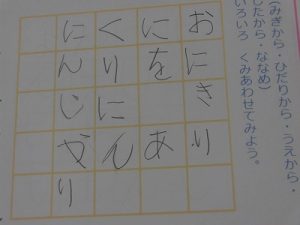 （みぎから・ひだりから・うえから・
したから・ななめ）
いろいろ　くみあわせてみよう。
おにきり
にをあ
くりにん
にんじかり